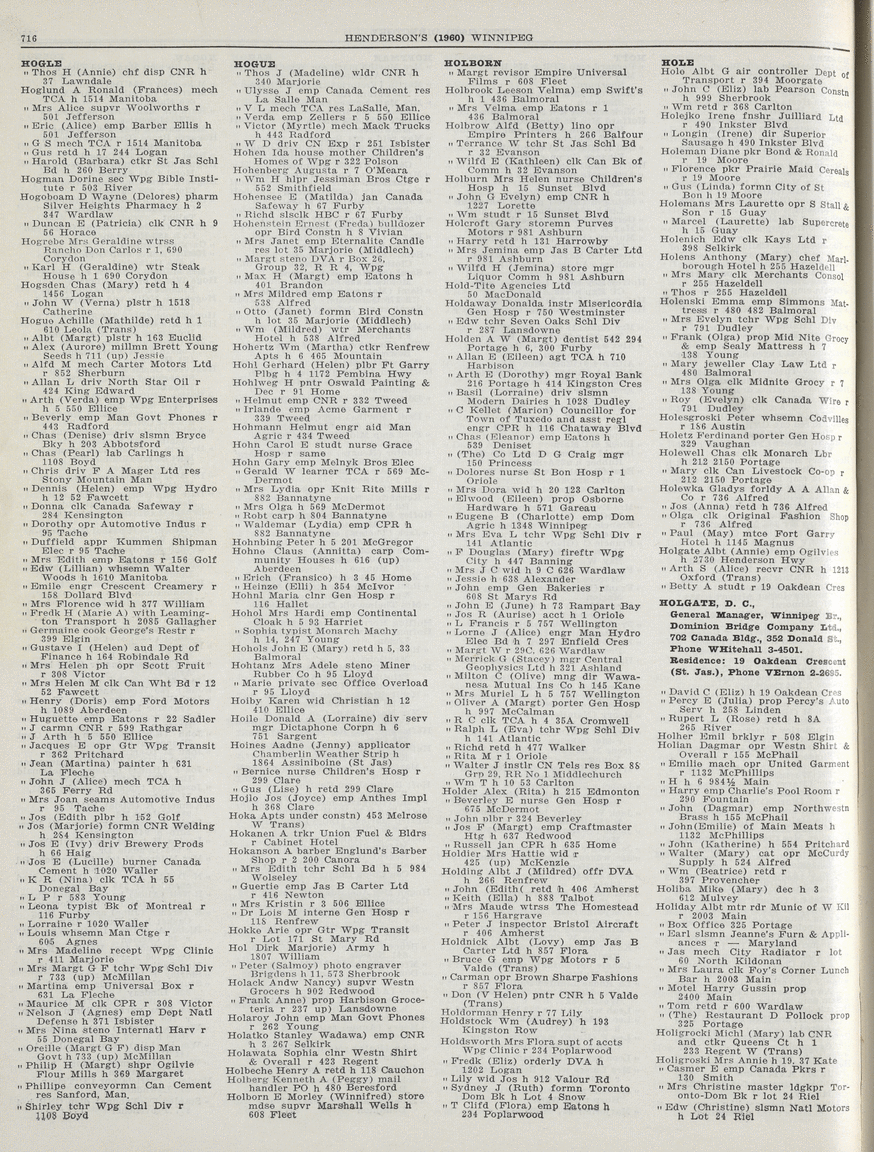 716 HENDERSON'S (1960) WINNIPEG
HOGLE
" Thos H (Annie) chf disp CNR h
37 Lawndale
Hoglund A Ronald (Frances) mech
TCA h 1514 Manitoba
" Mrs Alice supvr Woolworths r
501 Jefferson
" Eric (Alice) emp Barber Ellis h
501 Jefferson
" G S mech TCA r 1514 Manitoba
" Gus retd h 17 244 Logan
" Harold (Barbara) ctkr St Jas Schl
Bd h 260 Berry
Hogman Dorine sec Wpg Bible Insti-
tute r 503 River
Hogoboam D Wayne (Delores) pharm
Silver Heights Pharmacy h 2
347 Wardlaw
" Duncan E (Patricia) clk CNR h 9
56 Horace
Hogrebe Mrs Geraldine wtrss
Rancho Don Carlos r 1, 690
Corydon
" Karl H (Geraldine) wtr Steak
House h 1 690 Corydon
Hogsden Chas (Mary) retd h 4
1456 Logan
" John W (Verna) plstr h 1518
Catherine
Hogue Achille (Mathilde) retd h 1
610 Leola (Trans)
" Albt (Margt) plstr h 163 Euclid
" Alex (Aurore) millmn Brett Young
Seeds h 711 (up) Jessie
" Alfd M mech Carter Motors Ltd
r 852 Sherburn
" Allan L driv North Star Oil r
424 King Edward
" Arth (Verda) emp Wpg Enterprises
h 5 550 Ellice
" Beverly emp Man Govt Phones r
443 Radford
" Chas (Denise) driv slsmn Bryce
Bky h 203 Abbotsford
" Chas (Pearl) lab Carlings h
1108 Boyd
" Chris driv F A Mager Ltd res
Stony Mountain Man
" Dennis (Helen) emp Wpg Hydro
h 12 52 Fawcett
" Donna clk Canada Safeway r
284 Kensington
" Dorothy opr Automotive Indus r
95 Tache
" Duffield appr Kummen Shipman
Elec r 95 Tache
" Mrs Edith emp Eatons r 156 Golf
" Edw (Lillian) whsemn Walter
Woods h 1610 Manitoba
" Emile engr Crescent Creamery r
158 Dollard Blvd
" Mrs Florence wid h 377 William
" Fredk H (Marie A) with Leaming-
ton Transport h 2085 Gallagher
" Germaine cook George's Restr r
399 Elgin
" Gustave I (Helen) aud Dept of
Finance h 164 Robindale Rd
" Mrs Helen ph opr Scott Fruit
r 308 Victor
" Mrs Helen M clk Can Wht Bd r 12
52 Fawcett
" Henry (Doris) emp Ford Motors
h 1089 Aberdeen
" Huguette emp Eatons r 22 Sadler
" J carmn CNR r 599 Rathgar
" J Arth h 5 550 Ellice
" Jacques E opr Gtr Wpg Transit
r 362 Pritchard
" Jean (Martina) painter h 631
La Fleche
" John J (Alice) mech TCA h
365 Ferry Rd
" Mrs Joan seams Automotive Indus
r 95 Tache
" Jos (Edith plbr h 152 Golf
" Jos (Marjorie) formn CNR Welding
h 284 Kensington
" Jos E (Ivy) driv Brewery Prods
h 66 Haig
" Jos E (Lucille) burner Canada
Cement h 1020 Waller
" K R (Nina) clk TCA h 55
Donegal Bay
" L P r 583 Young
" Leona typist Bk of Montreal r
116 Furby
" Lorraine r 1020 Waller
" Louis whsemn Man Ctge r
605 Agnes
" Mrs Madeline recept Wpg Clinic
r 411 Marjorie
" Mrs Margt G F tchr Wpg Schl Div
r 733 (up) McMillan
" Martina emp Universal Box r
631 La Fleche
" Maurice M clk CPR r 308 Victor
" Nelson J (Agnes) emp Dept Natl
Defense h 371 Isbister
" Mrs Nina steno Internatl Harv r
55 Donegal Bay
" Oreille (Margt G F) disp Man
Govt h 733 (up) McMillan
" Philip H (Margt) shpr Ogilvie
Flour Mills h 369 Margaret
" Phillipe conveyormn Can Cement
res Sanford, Man.
" Shirley tchr Wpg Schl Div r
1108 Boyd
HOGUE
" Thos J (Madeline) wldr CNR h
340 Marjorie
" Ulysse J emp Canada Cement res
La Salle Man
" V L mech TCA res LaSalle, Man.
" Verda emp Zellers r 5 550 Ellice
" Victor (Myrtle) mech Mack Trucks
h 443 Radford
" W D driv CN Exp r 251 Isbister
Hohen Ida house mother Children's
Homes of Wpg r 322 Polson
Hohenberg Augusta r 7 O'Meara
" Wm H hlpr Jessiman Bros Ctge r
552 Smithfield
Hohensee E (Matilda) jan Canada
Safeway h 67 Furby
" Richd slsclk HBC r 67 Furby
Hohenstein Ernest (Freda) bulldozer
opr Bird Constn h 8 Vivian
" Mrs Janet emp Eternalite Candle
res lot 35 Marjorie (Middlech)
" Margt steno DVA r Box 26,
Group 32, R R 4, Wpg
" Max H (Margt) emp Eatons h
401 Brandon
" Mrs Mildred emp Eatons r
538 Alfred
" Otto (Janet) formn Bird Constn
h lot 35 Marjorie (Middlech)
" Wm (Mildred) wtr Merchants
Hotel h 538 Alfred
Hohertz Wm (Martha) ctkr Renfrew
Apts h 6 465 Mountain
Hohl Gerhard (Helen) plbr Ft Garry
Plbg h 4 1172 Pembina Hwy
Hohlweg H pntr Oswald Painting &
Dec r 91 Home
" Helmut emp CNR r 332 Tweed
" Irlande emp Acme Garment r
339 Tweed
Hohmann Helmut engr aid Man
Agric r 434 Tweed
Hohn Carol E studt nurse Grace
Hosp r same
Hohn Gary emp Melnyk Bros Elec
" Gerald W learner TCA r 569 Mc-
Dermot
" Mrs Lydia opr Knit Rite Mills r
882 Bannatyne
" Mrs Olga h 569 McDermot
" Robt carp h 804 Bannatyne
" Waldemar (Lydia) emp CPR h
882 Bannatyne
Hohnhing Peter h 5 201 McGregor
Hohne Claus (Annitta) carp Com-
munity Houses h 616 (up)
Aberdeen
" Erich (Fransico) h 3 45 Home
" Heinze (Elli) h 354 McIvor
Hohnl Maria clnr Gen Hosp r
116 Hallet
Hohol Mrs Hardi emp Continental
Cloak h 5 93 Harriet
" Sophia typist Monarch Machy
h 14, 247 Young
Hohols John E (Mary) retd h 5, 33
Balmoral
Hohtanz Mrs Adele steno Miner
Rubber Co h 95 Lloyd
" Marie private sec Office Overload
r 95 Lloyd
Hoiby Karen wid Christian h 12
410 Ellice
Hoile Donald A (Lorraine) div serv
mgr Dictaphone Corpn h 6
751 Sargent
Hoines Aadne (Jenny) applicator
Chamberlin Weather Strip h
1864 Assiniboine (St Jas)
" Bernice nurse Children's Hosp r
299 Clare
" Gus (Lise) h retd 299 Clare
Hojlo Jos (Joyce) emp Anthes Impl
h 368 Clare
Hoka Apts under constn) 453 Melrose
W Trans)
Hokanen A trkr Union Fuel & Bldrs
r Cabinet Hotel
Hokanson A barber Englund's Barber
Shop r 2 200 Canora
" Mrs Edith tchr Schl Bd h 5 984
Wolseley
" Guertie emp Jas B Carter Ltd
r 416 Newton
" Mrs Kristin r 3 506 Ellice
" Dr Lois M interne Gen Hosp r
118 Renfrew
Hokke Arie opr Gtr Wpg Transit
r Lot 171 St Mary Rd
Hol Dirk (Marjorie) Army h
1807 William
" Peter (Salmoy) photo engraver
Brigdens h 11, 573 Sherbrook
Holack Andw Nancy) supvr Westn
Grocers h 902 Redwood
" Frank Anne) prop Harbison Groce-
teria r 237 up) Lansdowne
Holaroy John emp Man Govt Phones
r 262 Young
Holatko Stanley Wadawa) emp CNR
h 3 267 Selkirk
Holawata Sophia clnr Westn Shirt
& Overall r 423 Regent
Holbeche Henry A retd h 118 Cauchon
Holberg Kenneth A (Peggy) mail
handler PO h 480 Beresford
Holborn E Morley (Winnifred) store
mdse supvr Marshall Wells h
608 Fleet
HOLBORN
" Margt revisor Empire Universal
Films r 608 Fleet
Holbrook Leeson Velma) emp Swift's
h 1 436 Balmoral
" Mrs Velma emp Eatons r 1
436 Balmoral
Holbrow Alfd (Betty) lino opr
Empire Printers h 266 Balfour
" Terrance W tchr St Jas Schl Bd
r 32 Evanson
" Wilfd E (Kathleen) clk Can Bk of
Comm h 32 Evanson
Holburn Mrs Helen nurse Children's
Hosp h 15 Sunset Blvd
" John G Evelyn) emp CNR h
1227 Lorette
" Wm studt r 15 Sunset Blvd
Holcroft Gary storemn Purves
Motors r 981 Ashburn
" Harry retd h 131 Harrowby
" Mrs Jemina emp Jas B Carter Ltd
r 981 Ashburn
" Wilfd H (Jemina) store mgr
Liquor Comm h 981 Ashburn
Hold-Tite Agencies Ltd
50 MacDonald
Holdaway Donalda instr Misericordia
Gen Hosp r 750 Westminster
" Edw tchr Seven Oaks Schl Div
r 287 Lansdowne
Holden A W (Margt) dentist 542 294
Portage h 6, 300 Furby
" Allan E (Eileen) agt TCA h 710
Harbison
" Arth E (Dorothy) mgr Royal Bank
216 Portage h 414 Kingston Cres
" Basil (Lorraine) driv slsmn
Modern Dairies h 1028 Dudley
" C Kellet (Marion) Councillor for
Town of Tuxedo and asst regl
engr CPR h 116 Chataway Blvd
" Chas (Eleanor) emp Eatons h
539 Deniset
" (The) Co Ltd D G Craig mgr
150 Princess
" Dolores nurse St Bon Hosp r 1
Oriole
" Mrs Dora wid h 20 123 Carlton
" Elwood (Eileen) prop Osborne
Hardware h 571 Gareau
" Eugene B (Charlotte) emp Dom
Agric h 1348 Winnipeg
" Mrs Eva L tchr Wpg Schl Div r
141 Atlantic
" F Douglas (Mary) fireftr Wpg
City h 447 Banning
" Mrs J C wid h 9 C 626 Wardlaw
" Jessie h 638 Alexander
" John emp Gen Bakeries r
608 St Marys Rd
" John E (June) h 73 Rampart Bay
" Jos R (Aurise) acct h 1 Oriole
" L Francis r 5 757 Wellington
" Lorne J (Alice) engr Man Hydro
Elec Bd h 7 297 Enfield Cres
" Margt W r 29C, 626 Wardlaw
" Merrick G (Stacey) mgr Central
Geophysics Ltd h 321 Ashland
" Milton C (Olive) mng dir Wawa-
nesa Mutual Ins Co h 145 Kane
" Mrs Muriel L h 5 757 Wellington
" Oliver A (Margt) porter Gen Hosp
h 997 McCalman
" R C clk TCA h 4 35A Cromwell
" Ralph L (Eva) tchr Wpg Schl Div
h 141 Atlantic
" Richd retd h 477 Walker
" Rita M r 1 Oriole
" Walter J instr CN Tels res Box 88
Grp 29, RR No 1 Middlechurch
" Wm T h 10 53 Carlton
Holder Alex (Rita) h 215 Edmonton
" Beverley E nurse Gen Hosp r
675 McDermot
" John plbr r 324 Beverley
" Jos F (Margt) emp Craftmaster
Htg h 637 Redwood
" Russell jan CPR h 635 Home
Holdier Mrs Hattie wid r
425 (up) McKenzie
Holding Albt J (Mildred) offr DVA
h 266 Renfrew
" John (Edith) retd h 406 Amherst
" Keith (Ella) h 888 Talbot
" Mrs Maude wtrss The Homestead
r 156 Hargrave
" Peter J inspector Bristol Aircraft
r 406 Amherst
Holdnick Albt (Lovy) emp Jas B
Carter Ltd h 857 Flora
" Bruce G emp Wpg Motors r 5
Valde (Trans)
" Carman opr Brown Sharpe Fashions
r 857 Flora
" Don (V Helen) pntr CNR h 5 Valde
(Trans)
Holdorman Henry r 77 Lily
Holdstock Wm (Audrey) h 193
Kingston Row
Holdsworth Mrs Flora supt of accts
Wpg Clinic r 234 Poplarwood
" Fredk (Eliz) orderly DVA h
1202 Logan
" Lily wid Jos h 912 Valour Rd
" Sydney J (Ruth) formn Toronto
Dom Bk h Lot 4 Snow
" T Clifd (Flora) emp Eatons h
234 Poplarwood
HOLE
Hole Albt G air controller Dept of
Transport r 394 Moorgate
" John C (Eliz) lab Pearson Constn
h 999 Sherbrook
" Wm retd r 368 Carlton
Holejko Irene fnshr Julliard Ltd
r 490 Inkster Blvd
" Longin (Irene) dir Superior
Sausage h 490 Inkster Blvd
Holeman Diane pkr Bond & Ronald
r 19 Moore
" Florence pkr Prairie Maid Cereals
r 19 Moore
" Gus (Linda) formn City of St
Bon h 19 Moore
Holemans Mrs Laurette opr S Stall &
Son r 15 Guay
" Marcel (Laurette) lab Supercrete
h 15 Guay
Holenich Edw clk Kays Ltd r
398 Selkirk
Holens Anthony (Mary) chef Marl-
borough Hotel h 255 Hazeldell
" Mrs Mary clk Merchants Consol
r 255 Hazeldell
" Thos r 255 Hazeldell
Holenski Emma emp Simmons Mat-
tress r 480 482 Balmoral
" Mrs Evelyn tchr Wpg Schl Div
r 791 Dudley
" Frank (Olga) prop Mid Nite Grocy
& emp Sealy Mattress h 7
138 Young
" Mary jeweller Clay Law Ltd r
480 Balmoral
" Mrs Olga clk Midnite Grocy r 7
138 Young
" Roy (Evelyn) clk Canada Wire r
791 Dudley
Holesgroski Peter whsemn Codvilles
r 186 Austin
Holetz Ferdinand porter Gen Hosp r
329 Vaughan
Holewell Chas clk Monarch Lbr
h 212 2150 Portage
" Mary clk Can Livestock Co-op r
212 2150 Portage
Holewka Gladys forldy A A Allan &
Co r 736 Alfred
" Jos (Anna) retd h 736 Alfred
" Olga clk Original Fashion Shop
r 736 Alfred
" Paul (May) mtce Fort Garry
Hotel h 1145 Magnus
Holgate Albt (Annie) emp Ogilvies
h 2730 Henderson Hwy
" Arth S (Alice) recvr CNR h 1213
Oxford (Trans)
" Betty A studt r 19 Oakdean Cres
HOLGATE, D. C.,
General Manager, Winnipeg Br.,
Dominion Bridge Company Ltd.,
702 Canada Bldg., 352 Donald St.,
Phone WHitehall 3-4501.
Residence: 19 Oakdean Crescent
(St. Jas.), Phone VErnon 2-2695.
" David C (Eliz) h 19 Oakdean Cres
" Percy E (Julia) prop Percy's Auto
Serv h 258 Linden
" Rupert L (Rose) retd h 8A
265 River
Holher Emil brklyr r 508 Elgin
Holian Dagmar opr Westn Shirt &
Overall r 155 McPhail
" Emilie mach opr United Garment
r 1132 McPhillips
" H h 6 984½ Main
" Harry emp Charlie's Pool Room r
290 Fountain
" John (Dagmar) emp Northwestn
Brass h 155 McPhail
" John(Emilie) of Main Meats h
1132 McPhillips
" John (Katherine) h 554 Pritchard
" Walter (Mary) cat opr McCurdy
Supply h 524 Alfred
" Wm (Beatrice) retd r
397 Provencher
Holiba Mike (Mary) dec h 3
612 Mulvey
Holiday Albt mtr rdr Munic of W Kil
r 2003 Main
" Box Office 325 Portage
" Earl slsmn Jeanne's Furn & Appli-
ances r — Maryland
" Jas mech City Radiator r lot
60 North Kildonan
" Mrs Laura clk Foy's Corner Lunch
Bar h 2003 Main
" Motel Harry Gussin prop
2400 Main
" Tom retd r 600 Wardlaw
" (The) Restaurant D Pollock prop
325 Portage
Holigrocki Michl (Mary) lab CNR
and ctkr Queens Ct h 1
233 Regent W (Trans)
Holigroski Mrs Annie h 19, 37 Kate
" Casmer E emp Canada Pkrs r
130 Smith
" Mrs Christine master ldgkpr Tor-
onto-Dom Bk r lot 24 Riel
" Edw (Christine) slsmn Natl Motors
h Lot 24 Riel